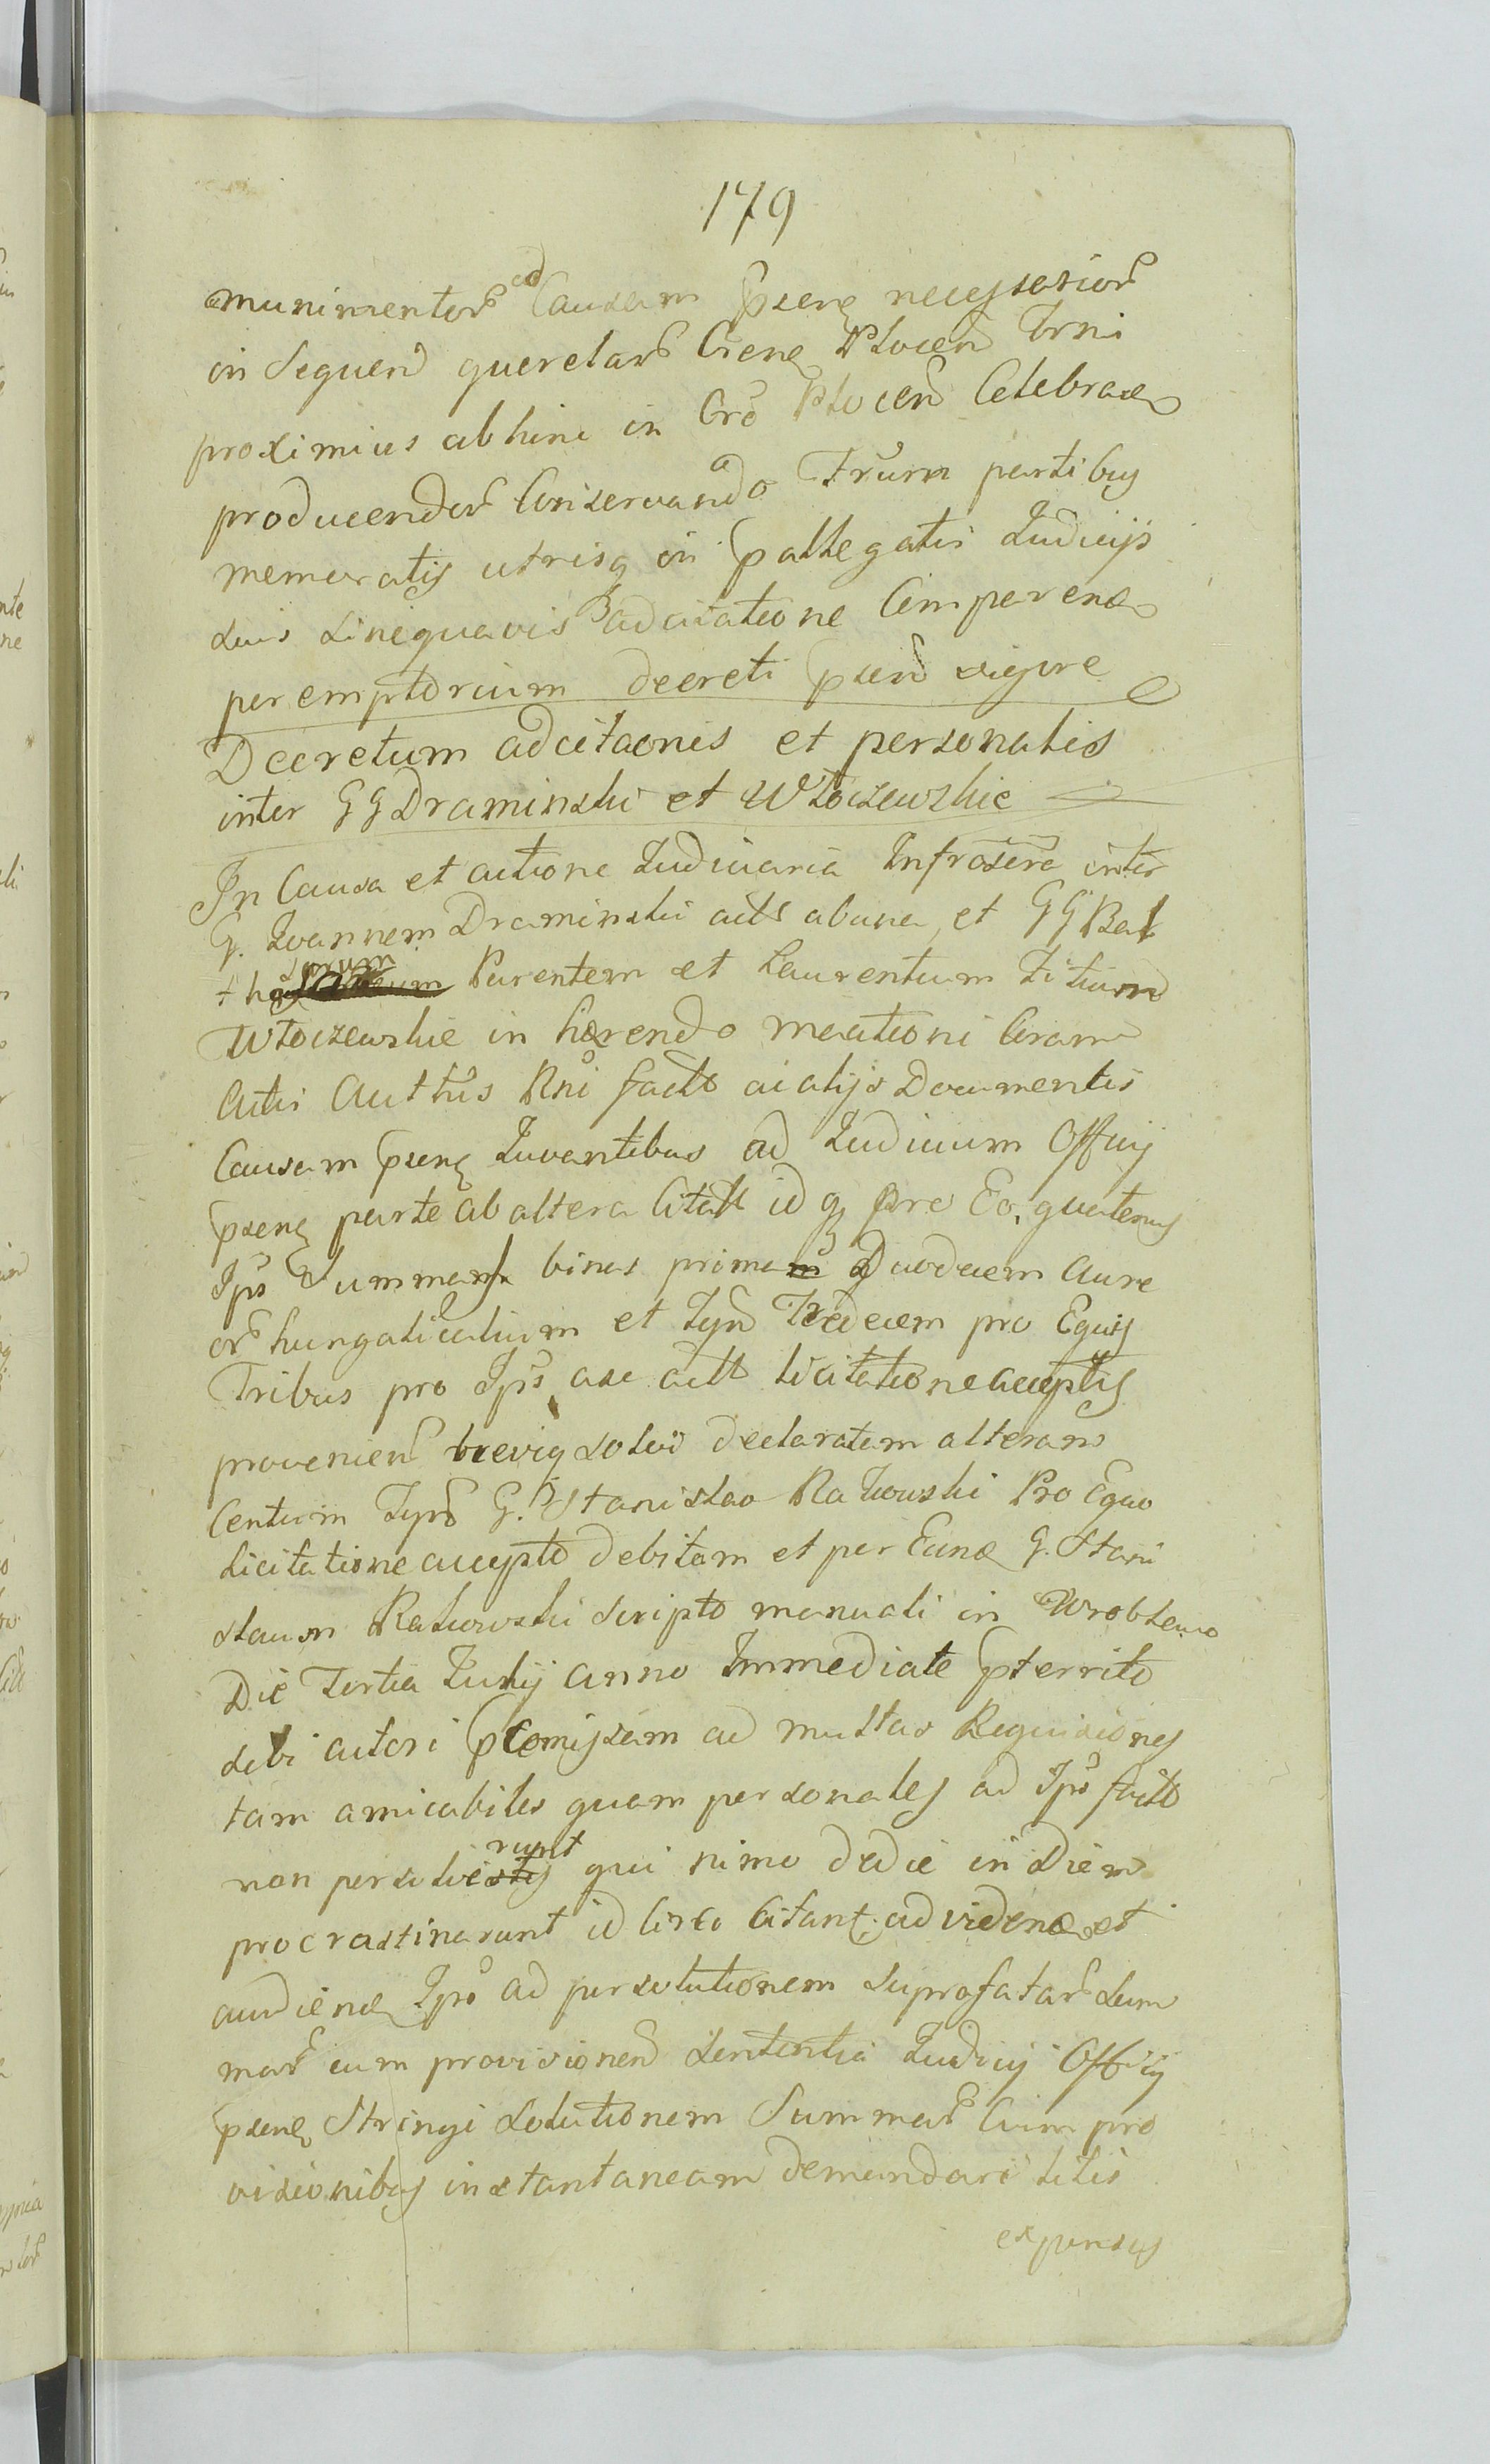 179
munimentor ad Causam psene necessarior
in Sequen querelar Gene Plocen Trni
proximius abhinc in Cro Plocen Celebran
producendor Conservando Trum partibus
memoratis utrisq in pallegatis Judicijs
suis sinequavis adcitatione Comparena
peremptorium decreti psen vigore
Decretum adcitaonis et personalis
inter GG Draminski et Włoczewskie
In Causa et actione Judiciaria Infrascre inter
G. Joannem Draminski act abuna et GG Bal
thasarum Parentem et Laurentum Filium
Włoczewskie in hærendo meationi Coram
Actis Autthis Rni fact aialijs Documentis
Causam psene Juvantibus ad Judicium Officij
psene parte ab altera Citatt id q pro Eo, quatenus
Ips Summam binas primam Duodecim Aure
or hungaricalium et Tyn Tredecem pro Equis
Tribus pro Ips axe actt licitatione acceptis
provenien brevig solvi declaratam alteram
Centum Tynf G. Stanislao Rakowski Pro Equo
licitatione accepto debitam et per Eund G. Stani
slaum Rakowski scripto manuali in Wroblewo
Die Tertia Julij anno Immediate pterrito
sibi actori promissam ad multas Requisiones
tam amicabiles quam personales ad Ips factt
non persolverunt qui nimo dedie in Diem
procrastinarunt id Circo Citant. ad videnď et
audiend Ips ad persolutionem suprafatar Sum
mar cum provisionen Sententia Judicij Officij
psene Stringi Solutionem Summar Cum pro
visionibus instantaneam demandari litis
expensis